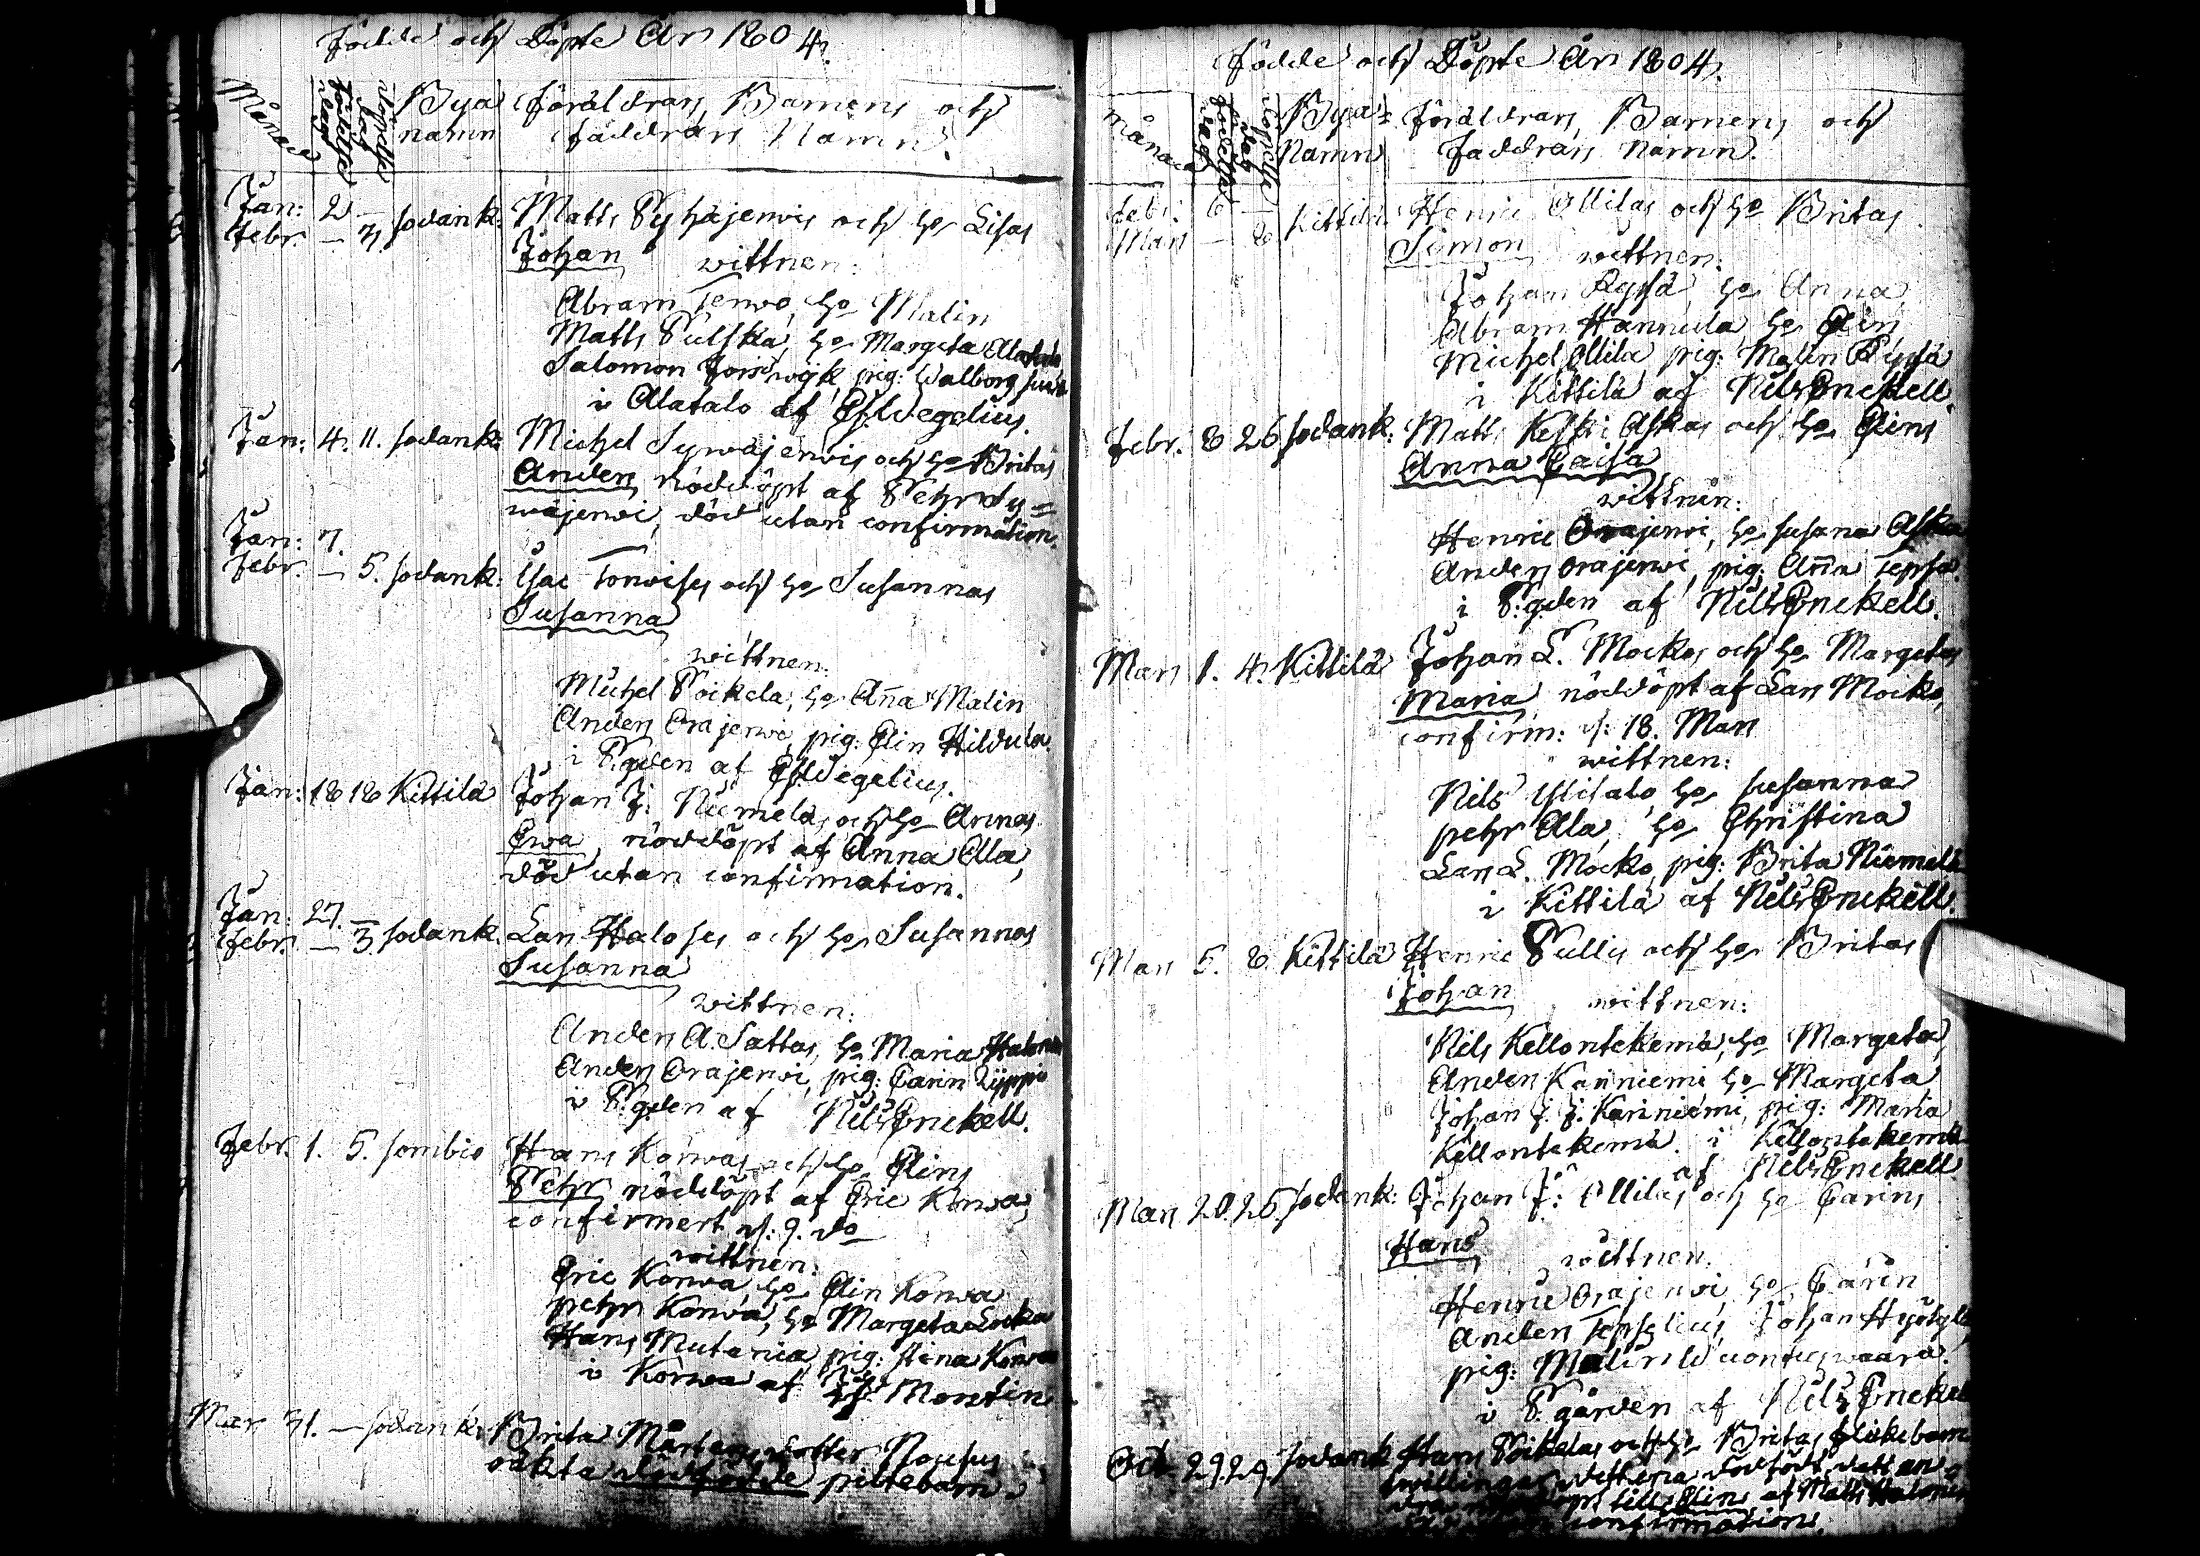 Födde och Döpte År 1804.
Månad
Födelse dag
döpelse dag
Bya namn
Föräldrars, Barnens och
Faddrars Namn.
Jan: 2 —
Febr. — 3. Sodank: Matts Pyhäjerwis och ho Lisas
Johan wittnen:
Abram Jerwo, ho Malin
Matts Pulska, ho Margeta Alatalo
Salomon pig: Walborg
i Alatalo af Es. Wegelius.
Jan: 4. 11. Sodank: Michel Sywäjerwis och ho Britas
Anders nöddöpt af Pehr Sy=
wäjerwi, död utan confirmation.
Jan: 7.
Febr. — 5. Sodank: Isac Torwises och ho Susannas
Susanna
wittnen:
Michel Poikela, ho Aña Malin
Anders Orajerwi, pig: Elin Hildula
i P.gden af Es. Wegelius.
Jan: 18 18 Kittilä Johan J: Niemelas och ho Annas
Ewa nöddöpt af Anna Ala,
död utan confirmation.
Jan: 27. —
Febr. — 3. Sodank. Lars Haloses och ho Susannas
Susanna
wittnen:
Anders A. Sattas, ho Maria Halonen
Anders Orajerwi, pig: Carin Zyppi
i P.gden af Nils Enckell.
Febr. 1. 5. Sombio Hans Korwas och ho Elins
Pehr nöddöpt af Eric Korwa,
confirmert d: 9. do
wittnen:
Eric Korwa, ho Elin Korwa
pehr Korwa, ho Margeta Locka
Hans Mutenia, pig: Stena Korwa
i Korwa af Montin
Mar 31. — Sodank: Brita Mårtensdotter
oäkta dödfödde piltebarn.
Födde och Döpte År 1804.
Månad
Födelse dag
döpelse dag
Bya= Namn
Föräldrars, Barnens och
Faddrars Namn.
Febr: 6 —
Mars — 8 Kittilä Henric Ollilas och ho Britas
Simon wittnen:
Johan Rysä, ho Anna,
Abram Hannula ho Elin
Michel Ollila pig: Malin Rysä
i Kittilä af Nils Enckell.
Febr. 8 26 Sodank: Matts Keski Askas och ho Elins
Anna Caisa
wittnen:
Henric Orajerwi, ho Susana Aska
Anders Orajerwi, pig: Aña Tepsa.
i P:gden af Nils Enckell.
Mars 1. 4. Kittilä Johan L. Mockos och ho Margetas
Maria nöddöpt af Lars Mocko,
confirm: d: 18. Mars
wittnen:
Nils Ylitalo ho Susanna
pehr Ala, ho Christina
Lars L. Mocko, pig: Brita Niemelä
i Kittilä af Nils Enckell.
Mars 5. 8 Kittilä Henric Pullis och ho Britas
Johan wittnen:
Nils Kellontekemä, ho Margeta,
Anders Kariniemi ho Margeta
Johan J. J. Kariniemi, pig: Maria
Kellontekemä. i Kellontekemä
af Nils Enckell
Mars 20. 25 Sodank: Johan J: Ollilas och ho Carins
Hans wittnen.
Henric Orajerwi ho Carin
Anders Tepselius, Johan Hyötylä,
pig: Malin Wuontiswaara.
i P. gården af Nils Enckell
Oct. 29. 29. Sodank Hans Poikelas och ho Britas flickebarn
twillingar, dödfödt, dett an-
dra nöddöpt till Elin, af Matts Halonen
confirmation.